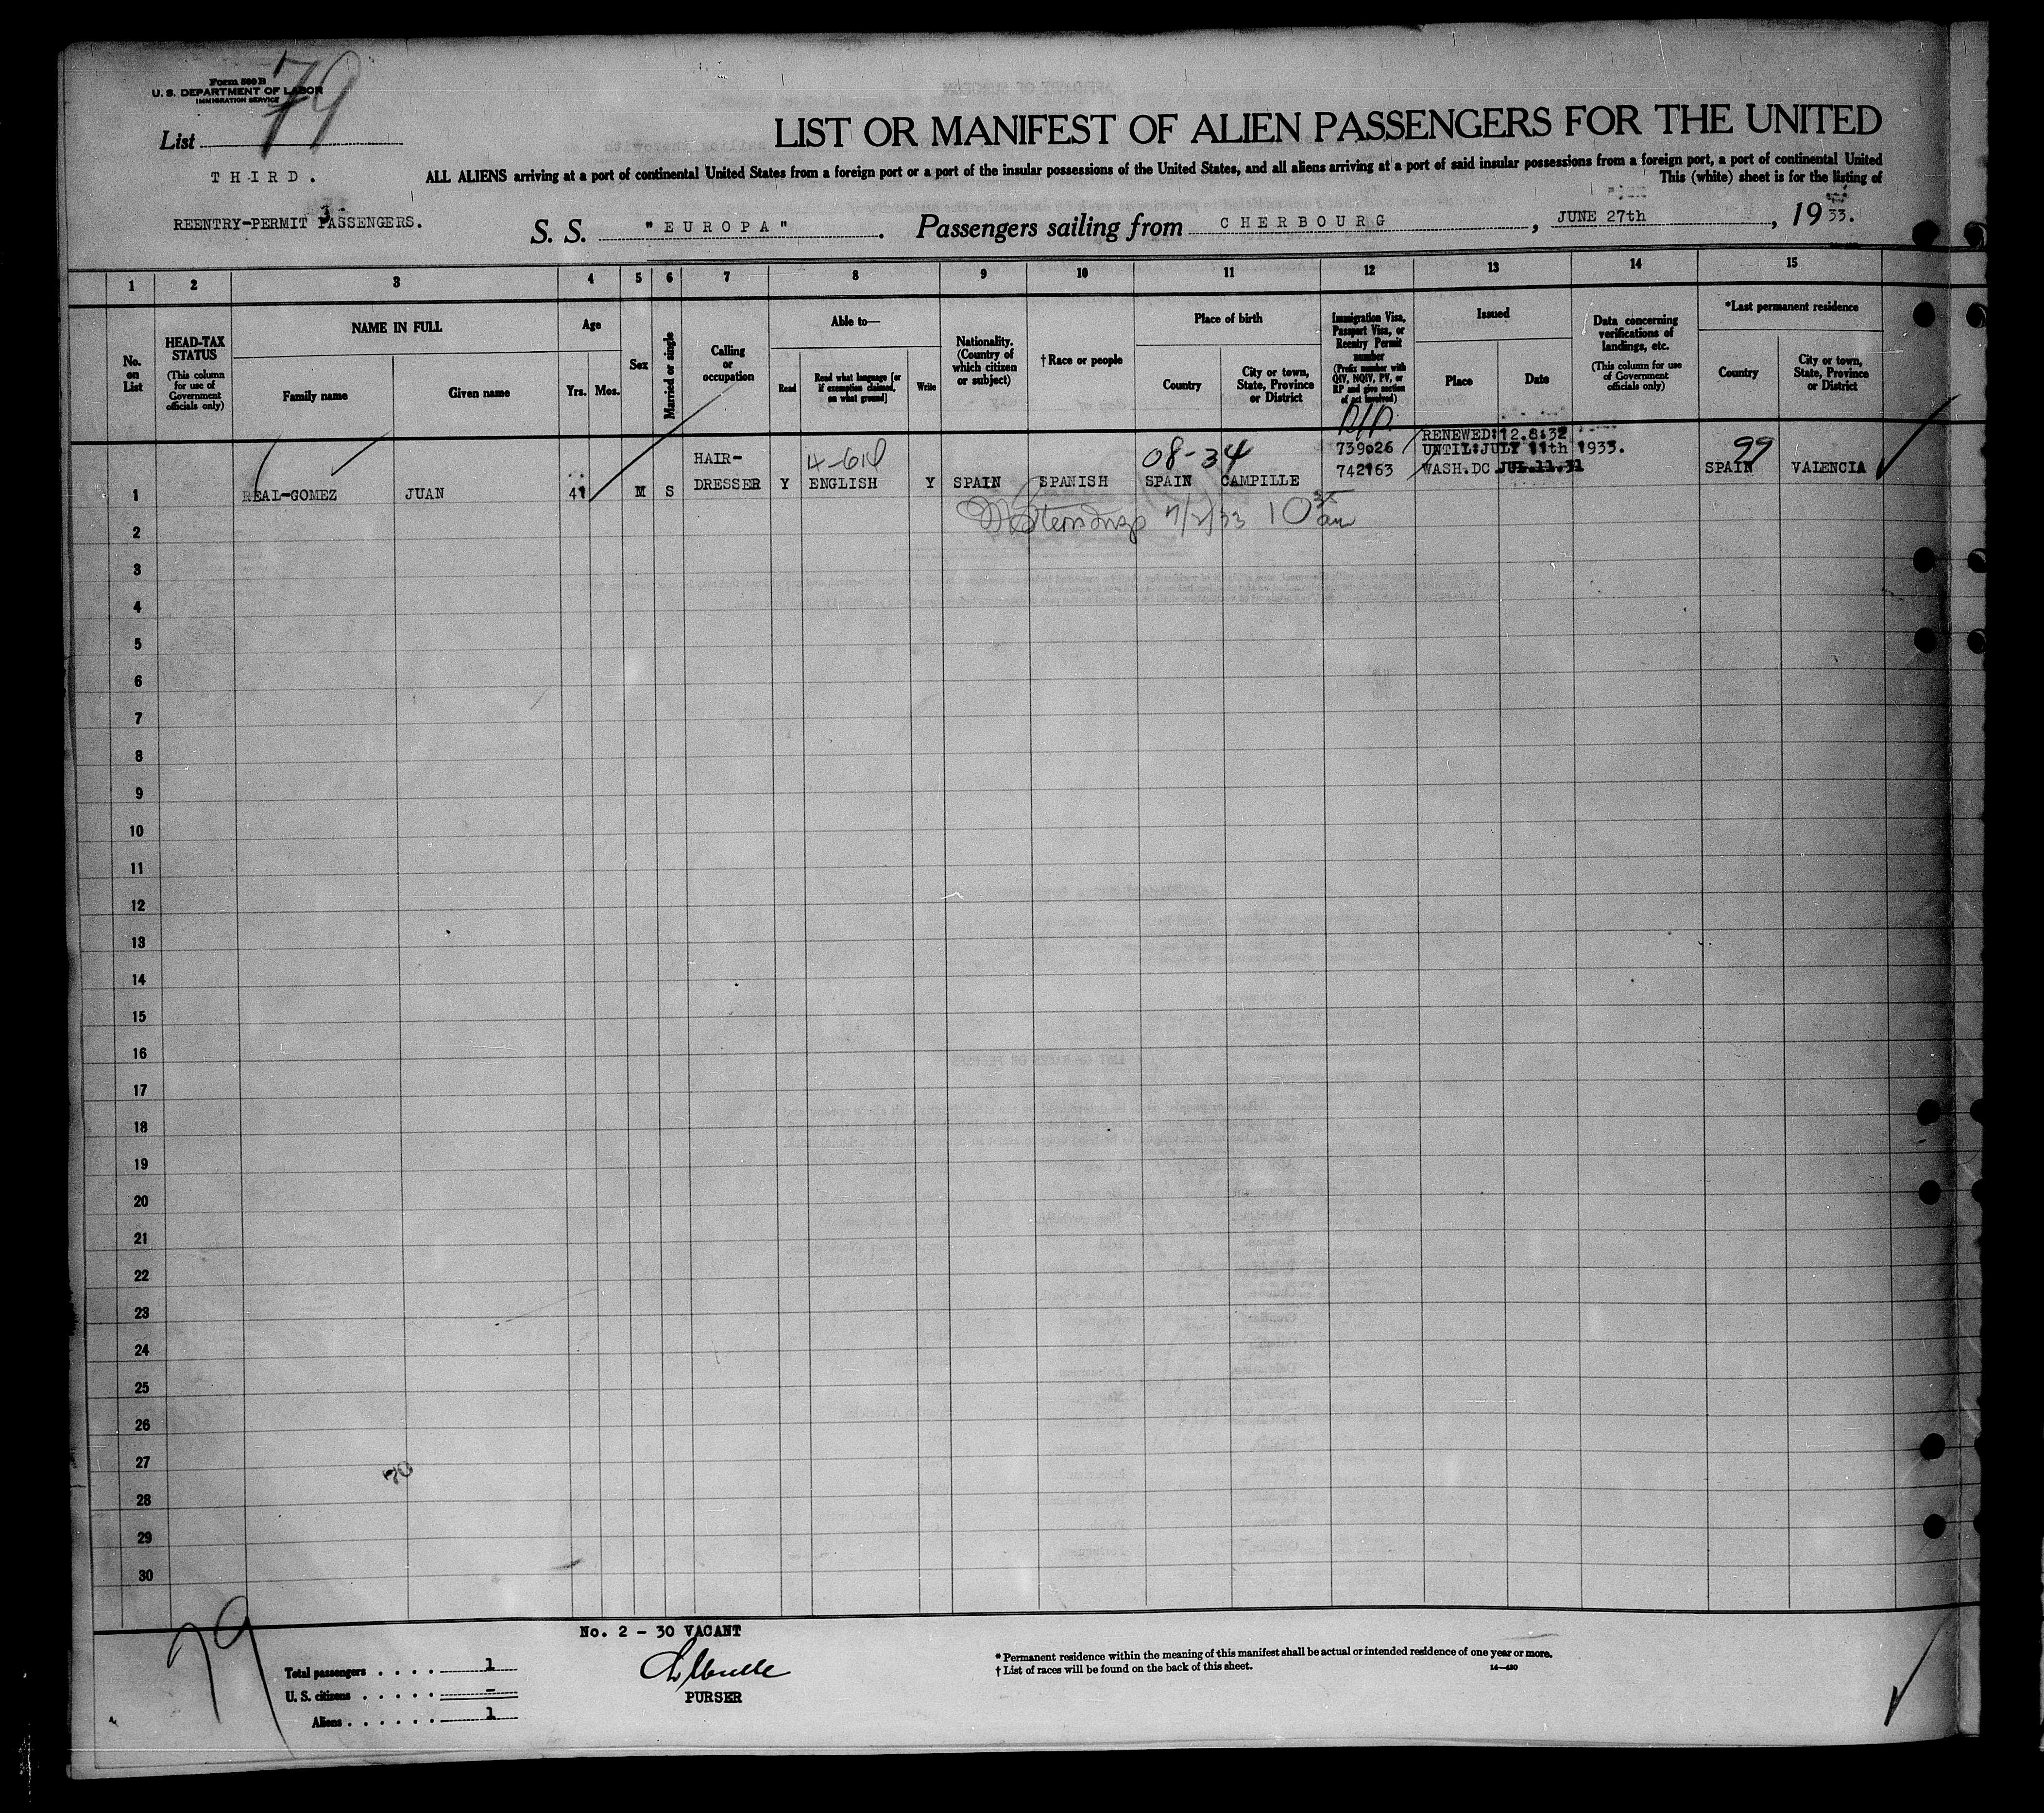 Form 500 B
U. S. DEPARTMENT OF LABOR
IMMIGRATION SERVICE
79
List
THIRD.
3
REENTRY-PERMIT PASSENGERS.
LIST OR MANIFEST OF ALIEN PASSENGERS FOR THE UNITED
ALL ALIENS arriving at a port of continental United States from a foreign port or a port of the insular possessions of the United States, and all aliens arriving at a port of said insular possessions from a foreign port, a port of continental United
This (white) sheet is for the listing of
S. S. "EUROPA". Passengers sailing from CHERBOURG, JUNE 27th, 1933.
1 2 3 4 5 6 7 8 9 10 11 12 13 14 15
No. on List
HEAD-TAX STATUS (This column for use of Government officials only)
NAME IN FULL
Family name
Given name
Age
Yrs. Mos.
Sex
Married or single
Calling or occupation
Able to—
Read
Read what language [or if exemption claimed, on what ground]
Write
Nationality. (Country of which citizen or subject)
† Race or people
Place of birth
Country
City or town, State, Province or District
Immigration Visa, Passport Visa, or Reentry Permit number (Prefix number with QIV, NQIV, PV, or RP and give section of act involved)
Issued
Place
Date
Data concerning verifications of landings, etc. (This column for use of Government officials only)
*Last permanent residence
Country
City or town, State, Province or District
1 REAL-GOMEZ JUAN 41 M S HAIR-DRESSER Y ENGLISH Y SPAIN SPANISH SPAIN CAMPILLE
08-34
739026
742163
RENEWED: 12.8.32
UNTIL: JULY 11th 1933.
WASH.DC JUL.11.31
99
SPAIN VALENCIA
7/2/33 10
2
3
4
5
6
7
8
9
10
11
12
13
14
15
16
17
18
19
20
21
22
23
24
25
26
27
28
29
30
79
No. 2 - 30 VACANT
PURSER
Total passengers . . . . 1
U. S. citizens . . . . . -
Aliens . . . . . . 1
* Permanent residence within the meaning of this manifest shall be actual or intended residence of one year or more.
† List of races will be found on the back of this sheet.
14—420